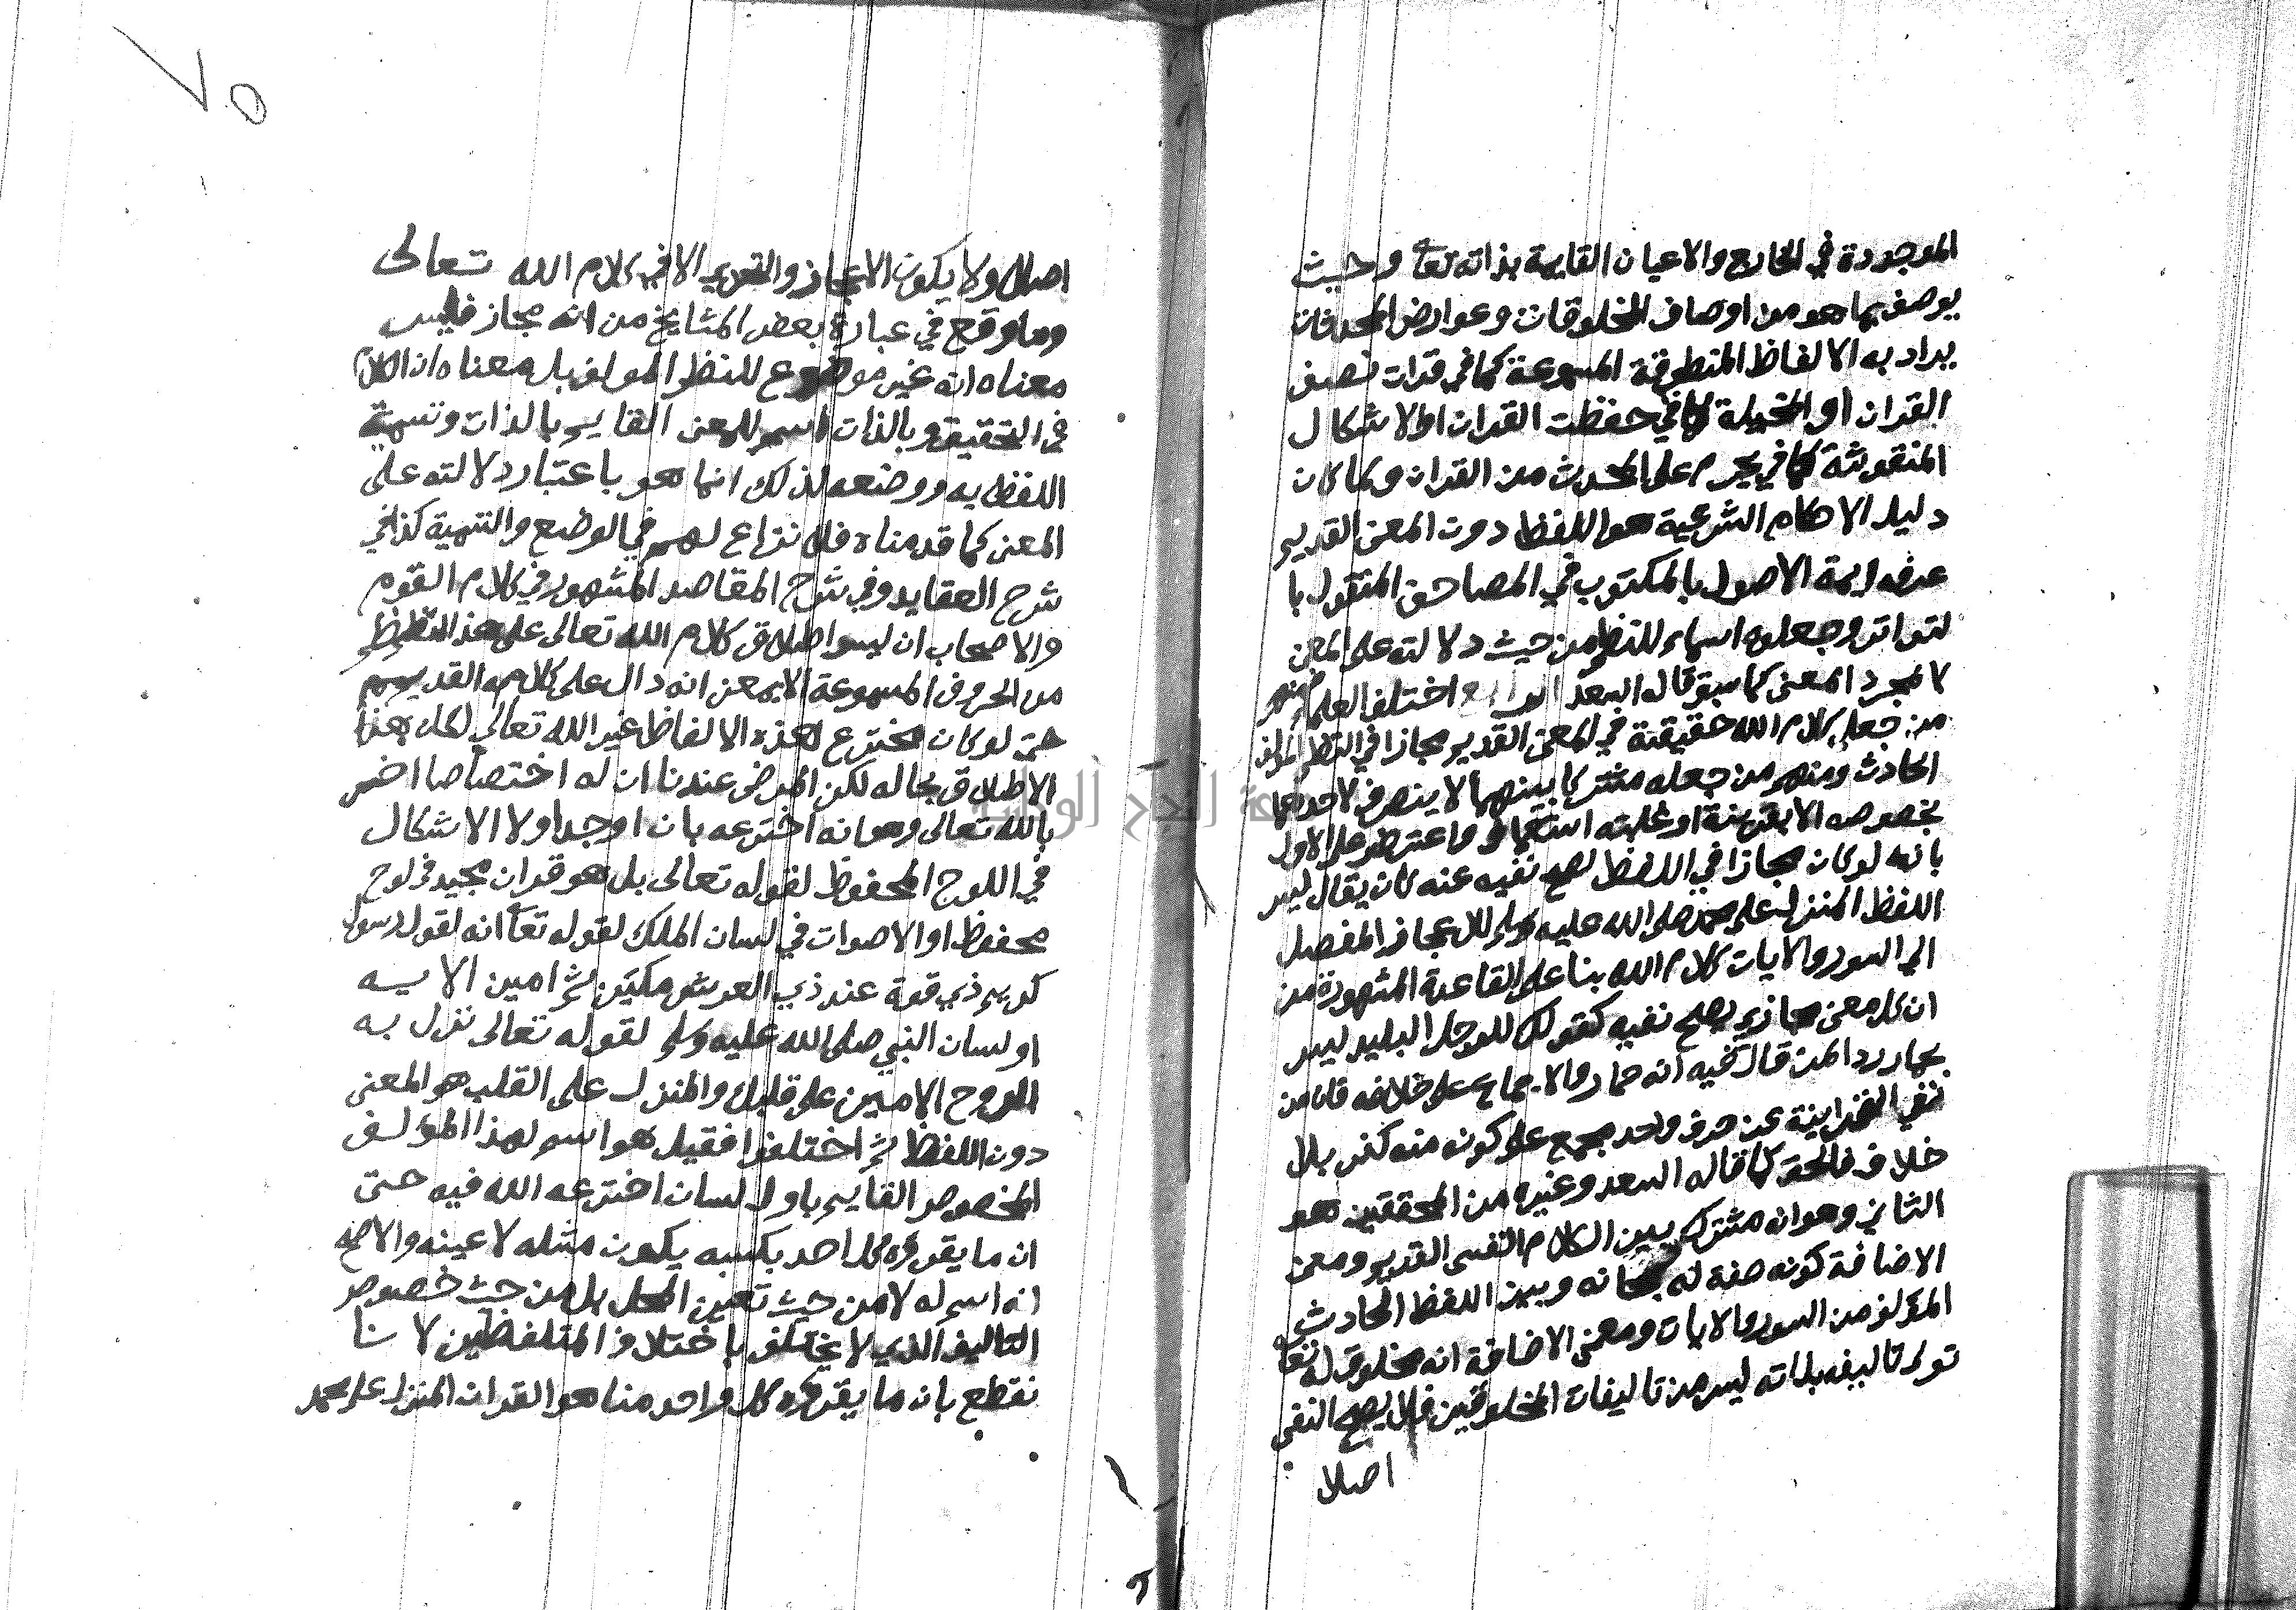 الموجودة في الخارج والاعيان القايمة بذاته تعا وحيث
يوصف بما هو من اوصاف المخلوقات وعوارض المحدثات
يراد به الالفاظ المنطوقة المسموعة كما في قرات نصف
القران او المخيلة كما في حفظت القران او الاشكال
المنقوشة كما في يحرم على المحدث مس القران ولما كان
دليل الاحكام الشرعية هو اللفظ دون المعنى القديم
عرفه ايمة الاصول بالمكتوب في المصاحف المنقول با
لتواتر وجعلوه اسما للنظم من حيث دلالته على المعنى
لا مجرد المعنى كما سبق قاله السعد اختلف العلماء فمنهم
من جعل كلام الله حقيقة في المعنى القديم مجازا في النظم المولف
الحادث ومنهم من جعله مشتركا بينهما لا ينصرف لاحدهما
بخصوصه الا بقرينة او غلبة استعمال واعترض على الاول
بانه لو كان مجازا في اللفظ لصح نفيه عنه كان يقال ليس
اللفظ المنزل على محمد صلى الله عليه وسلم للاعجاز المفصل
الى السور والايات كلام الله بنا على القاعدة المشهورة من
ان كل معنى مجازي يصح نفيه كقولك للرجل البليد ليس
بحمار ردا لمن قال فيه انه حمار والاجماع على خلافه فان من
نفى القرانية عن حرف واحد مجمع على كونه منه كفر بلا
خلاف فالحق كما قاله السعد وغيره من المحققين هو
الثاني وهو انه مشترك بين الكلام النفسي القديم ومعنى
الاضافة كونه صفة له سبحانه وبين اللفظ الحادث
المؤلف من السور والايات ومعنى الاضافة انه مخلوق له تعا
تولى تاليفه بذاته ليس من تاليفات المخلوقين فلا يصح النفي
اصلا
٧٥
اصلا ولا يكون الاعجاز والتحدي الا في كلام الله تعالى
وما وقع في عبارة بعض المشايخ من انه مجاز فليس
معناه انه غير موضوع للنظم المولف بل معناه ان الكلام
في التحقيق وبالذات اسم للمعنى القايم بالذات وتسمية
اللفظ به ووضعه لذلك انما هو باعتبار دلالته على
المعنى كما قدمناه فلا نزاع لهم في الوضع والتسمية كذا في
شرح العقايد وفي شرح المقاصد المشهور في كلام القوم
والاصحاب ان ليس اطلاق كلام الله تعالى على هذا النظم
من الحروف المسموعة الا بمعنى انه دال على كلامه القديم
حتى لو كان مخترع هذه الالفاظ غير الله تعالى لكان هذا
الاطلاق بحاله لكن المرضي عندنا ان له اختصاصا اخر
بالله تعالى وهو انه اخترعه بان اوجد اولا الاشكال
في اللوح المحفوظ لقوله تعالى بل هو قران مجيد في لوح
محفوظ او الاصوات في لسان الملك لقوله تعا انه لقول رسول
كريم ذي قوة عند ذي العرش مكين ثم امين الايه
او لسان النبي صلى الله عليه وسلم لقوله تعالى نزل به
الروح الامين على قلبك والمنزل على القلب هو المعنى
دون اللفظ ثم اختلفوا فقيل هو اسم لهذا المؤلف
المخصوص القايم باول لسان اخترعه الله فيه حتى
ان ما يقروه كل احد بكسبه يكون مثله لا عينه والاصح
انه اسم له لا من حيث تعين المحل بل من حيث خصوص
التاليف الذي لا يختلف باختلاف المتلفظين لاننا
نقطع بان ما يقروه كل واحد منا هو القران المنزل على محمد